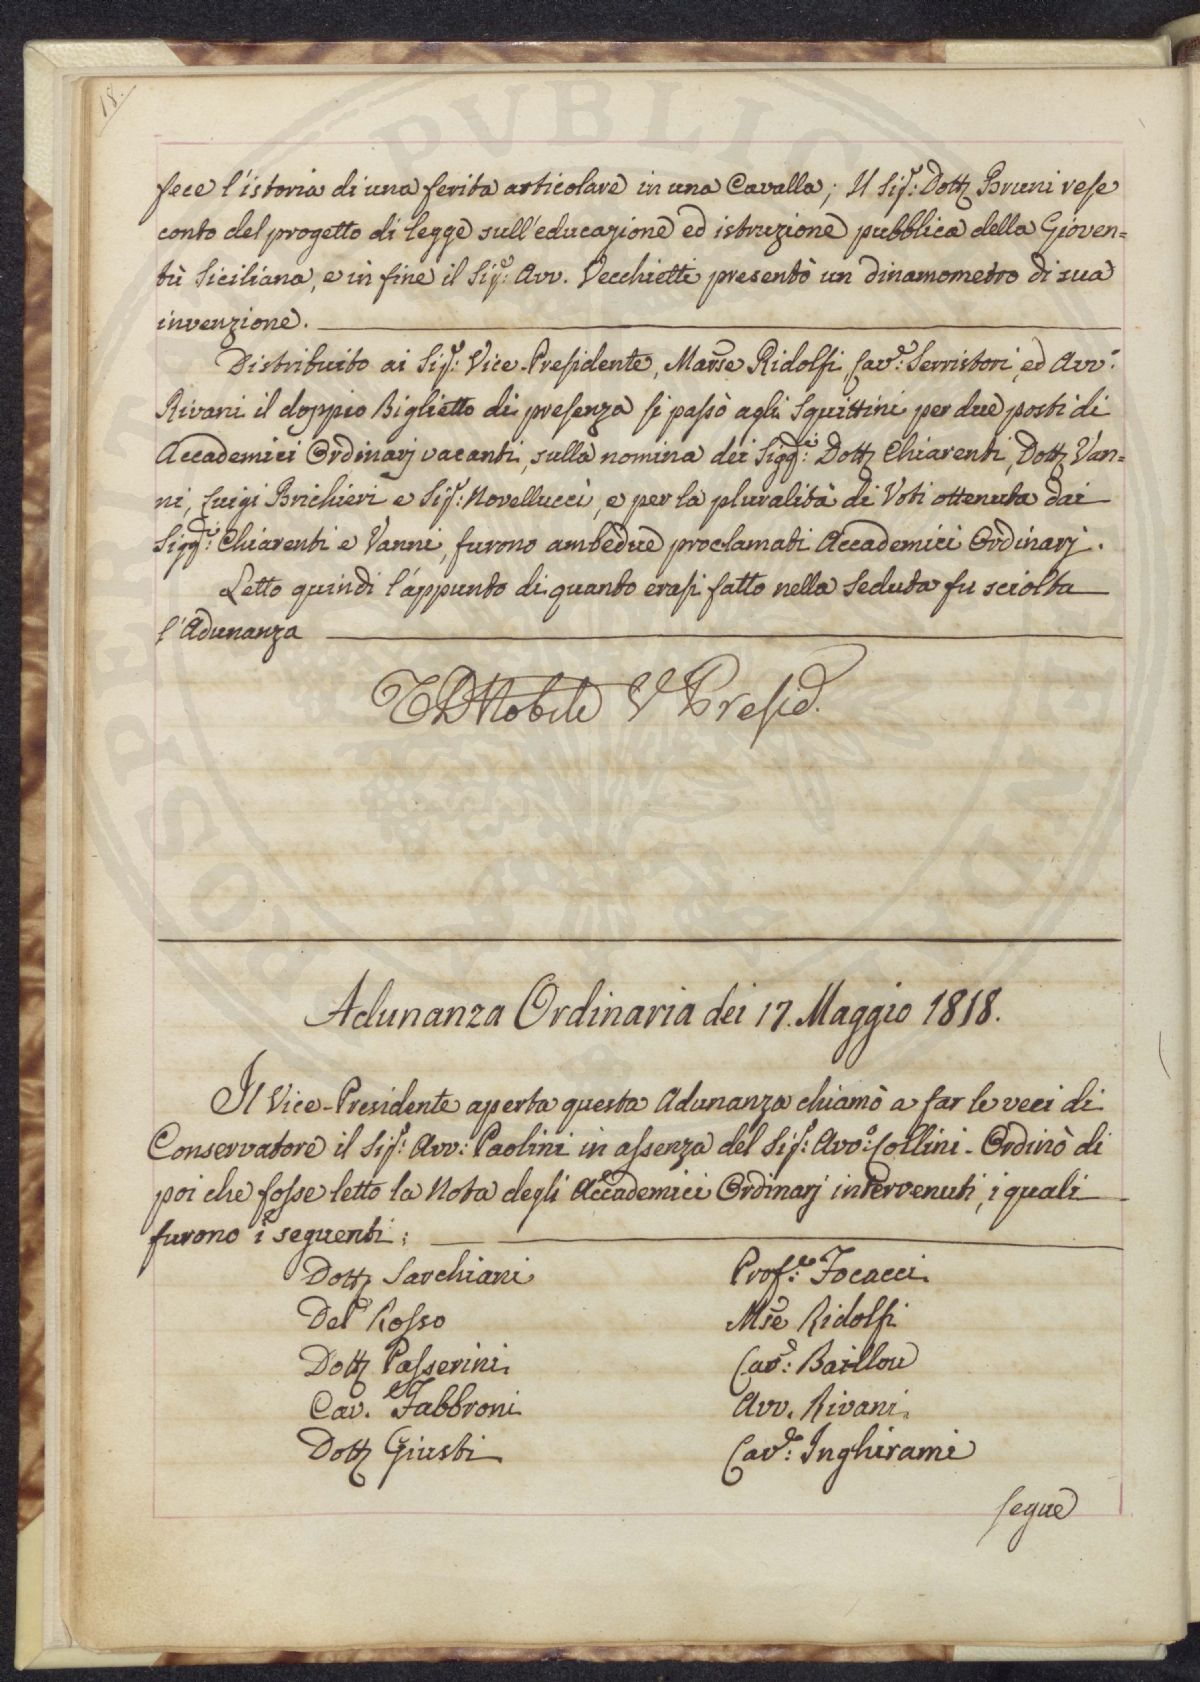 18.
fece l'istoria di una ferita articolare in una Cavalla; Il Sigr: Dott Bruni rese
conto del progetto di legge sull'educazione ed istruzione pubblica della Gioven=
tù Siciliana, e in fine il Sigr: Avv. Vecchietti presentò un dinamometro di sua
invenzione.
Distribuito ai Sigri: Vice-Presidente, Marse Ridolfi, Cave: Serristori, ed Avvo:
Rivani il doppio Biglietto di presenza si passò agli Squittini per due posti di
Accademici Ordinarj vacanti, sulla nomina dei Siggri: Dott Chiarenti, Dott Van=
ni, Luigi Brichieri e Sigr: Novellucci, e per la pluralità di Voti ottenuta dai
Siggri: Chiarenti e Vanni, furono ambedue proclamati Accademici Ordinarj.
Letto quindi l'appunto di quanto erasi fatto nella Seduta fu sciolta
l'Adunanza
Nobili V Presid.
Adunanza Ordinaria dei 17. Maggio 1818.
Il Vice-Presidente aperta questa Adunanza chiamò a far le veci di
Conservatore il Sigr: Avv: Paolini in assenza del Sigr: Avvo: Collini - Ordinò di
poi che fosse letto la Nota degli Accademici Ordinarj intervenuti, i quali
furono i seguenti:
Dott Sarchiani
Del Rosso
Dott Passerini
Cav. Fabbroni
Dott Giusti
Profre: Focacci
Mse Ridolfi
Cave: Baillou
Avv. Rivani
Cave: Inghirami
segue